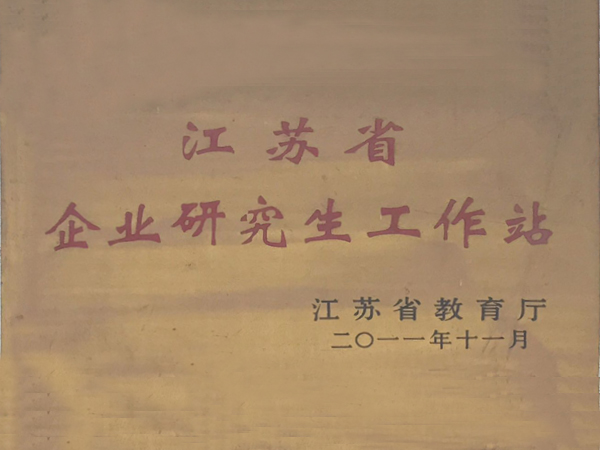 江苏省
企业研究生工作站
江苏省教育厅
二〇一一年十一月